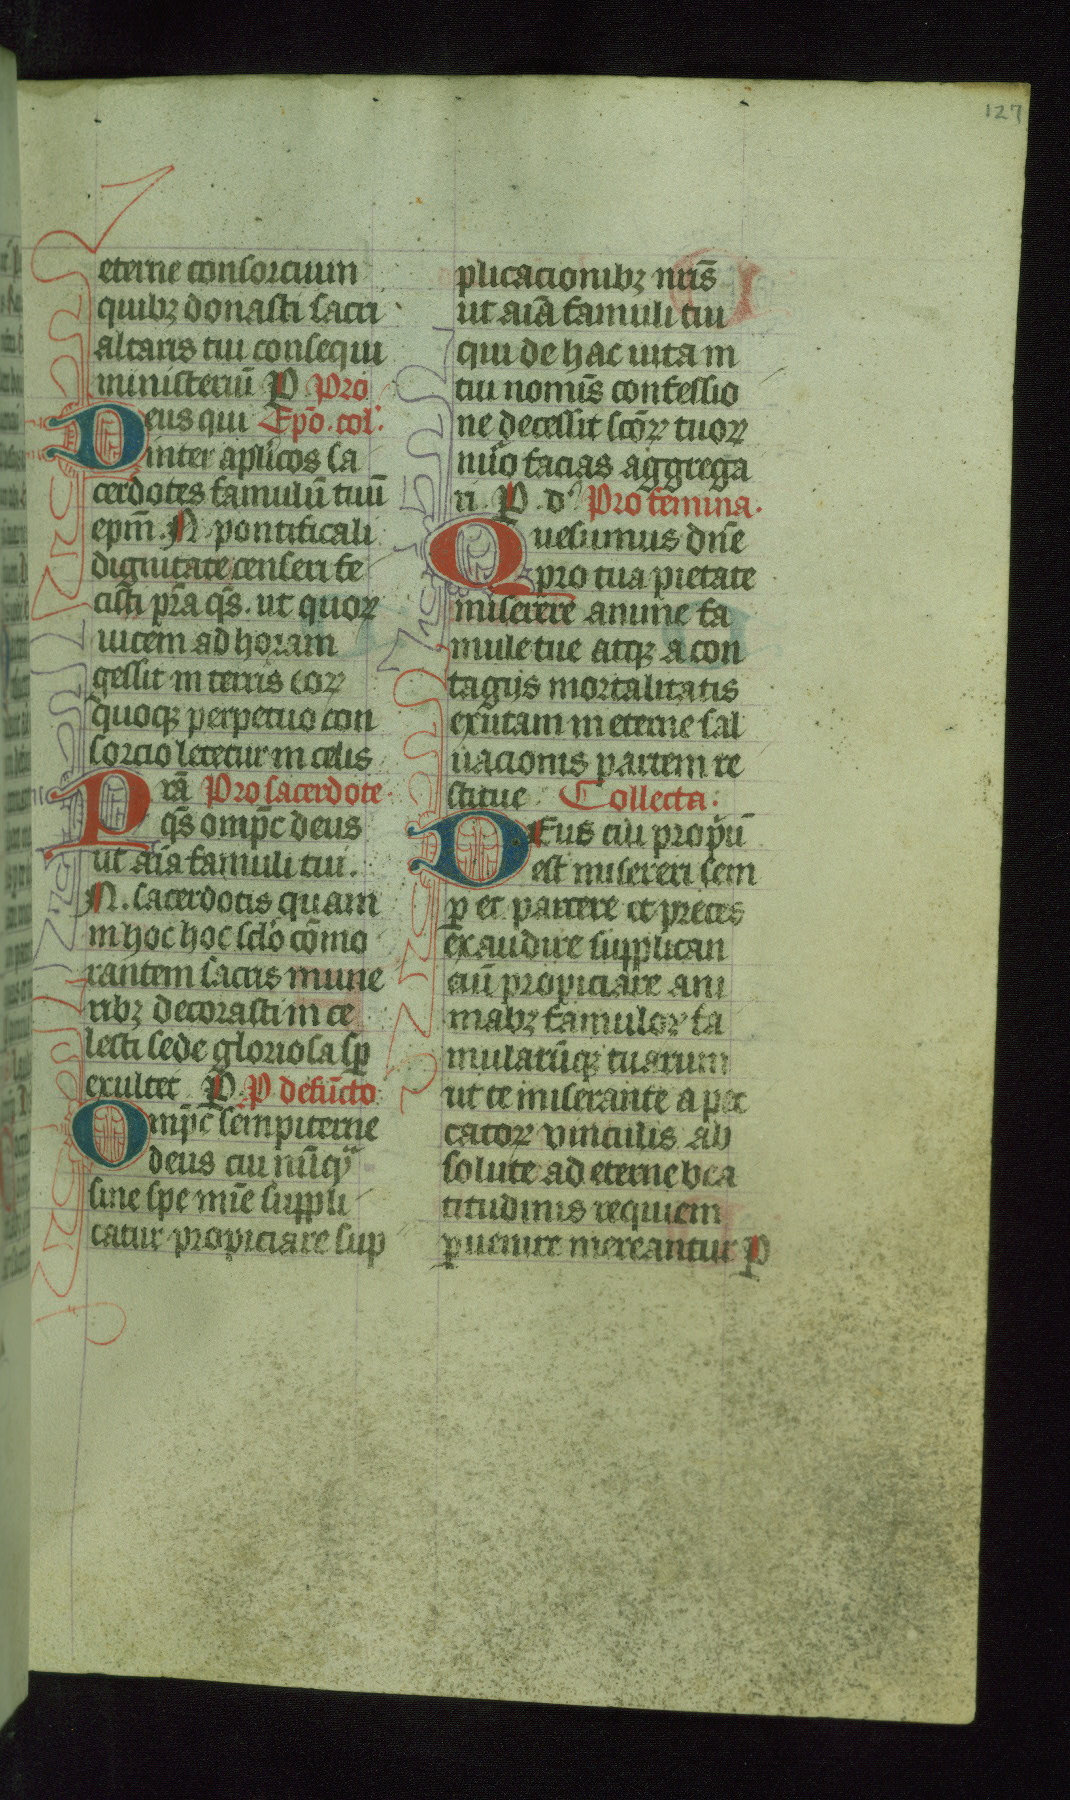 127
eterne consorcium
quibꝫ donasti sacri
altaris tui consequi
ministeriū P Pro
Deus qui Epō. col'.
inter aplicos sa
cerdotes famulū tuū
epm̄. N. pontificali
dignitate censeri fe
cisti pr̄a qs̄. ut quoꝝ
uicem ad horam
gessit in terris eoꝝ
quoqꝫ perpetuo con
sorcio letetur in celis
Prā Pro sacerdote.
qs̄ omp̄c deus
ut aīa famuli tui.
N. sacerdotis quam
in hoc hoc sclō cōmo
rantem sacris mune
ribꝫ decorasti in ce
lesti sede gloriosa sꝑ
exultet P. P defūcto
Omp̄c sempiterne
deus cui nūqᷓ
sine spe mīe suppli
catur propiciare sup
plicacionibꝫ nr̄is
ut aīa famuli tui
qui de hac uita in
tui nomīs confessio
ne decessit scōꝝ tuoꝝ
nūo facias aggrega
ri. P. d'. Pro femina.
Quesumus dn̄e
pro tua pietate
miserere anime fa
mule tue atqꝫ a con
tagijs mortalitatis
exutam in eterne sal
uacionis partem re
stitue Collecta.
DEus cui propiū
est misereri sem
ꝑ et parcere et preces
exaudire supplican
ciū propiciare ani
mabꝫ famuloꝝ fa
mularūqꝫ tuarum
ut te miserante a pec
catoꝝ vinculis ab
solute ad eterne bea
titudinis requiem
ꝑuenire mereantur P